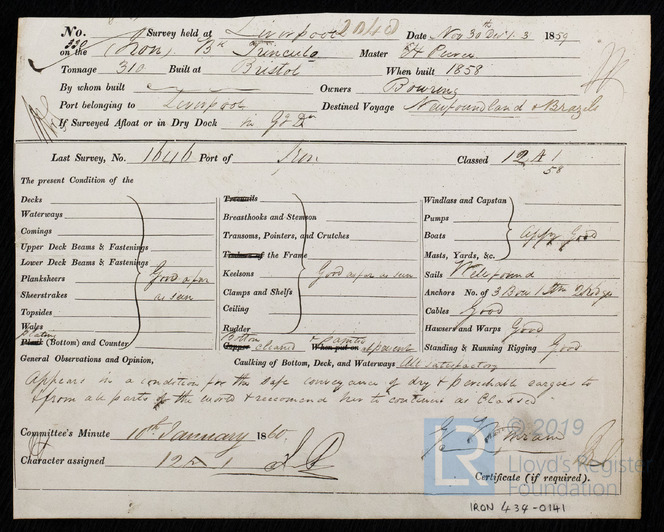 No. Survey held at Liverpool Date Nov 30th Dec 1. 3 1859
on the (Iron) Bk Trinculo Master
Tonnage 310 Built at Bristol When built 1858
By whom built Owners Bowring
Port belonging to Liverpool Destined Voyage Newfoundland & Brazils
If Surveyed Afloat or in Dry Dock in
Last Survey, No. 1646 Port of Iron Classed 12 A 1
58
The present Condition of the
Decks
Waterways
Comings
Upper Deck Beams & Fastenings
Lower Deck Beams & Fastenings
Planksheers Good as far
Sheerstrakes as seen
Topsides
Wales
Plating
Plank (Bottom) and Counter
Treenails
Breasthooks and Stemson
Transoms, Pointers, and Crutches
Timbers of the Frame
Keelsons Good as far as seen
Clamps and Shelfs
Ceiling
Rudder
Bottom & painted
Copper cleaned When put on at present
Windlass and Capstan
Pumps
Boats Appy Good
Masts, Yards, &c.
Sails Well found
Anchors No. of 3 Bow 1 Stm 2 Kedges
Cables Good
Hawsers and Warps Good
Standing & Running Rigging Good
General Observations and Opinion, Caulking of Bottom, Deck, and Waterways All satisfactory
Appears in a condition for the safe conveyance of dry & perishable cargoes to
& from all parts of the world & recommend her to continue as Classed
Committee's Minute 10th January 1860
Character assigned 12 A 1
Certificate (if required).
© 2019
LR Lloyd's Register
Foundation
IRON 434-0141